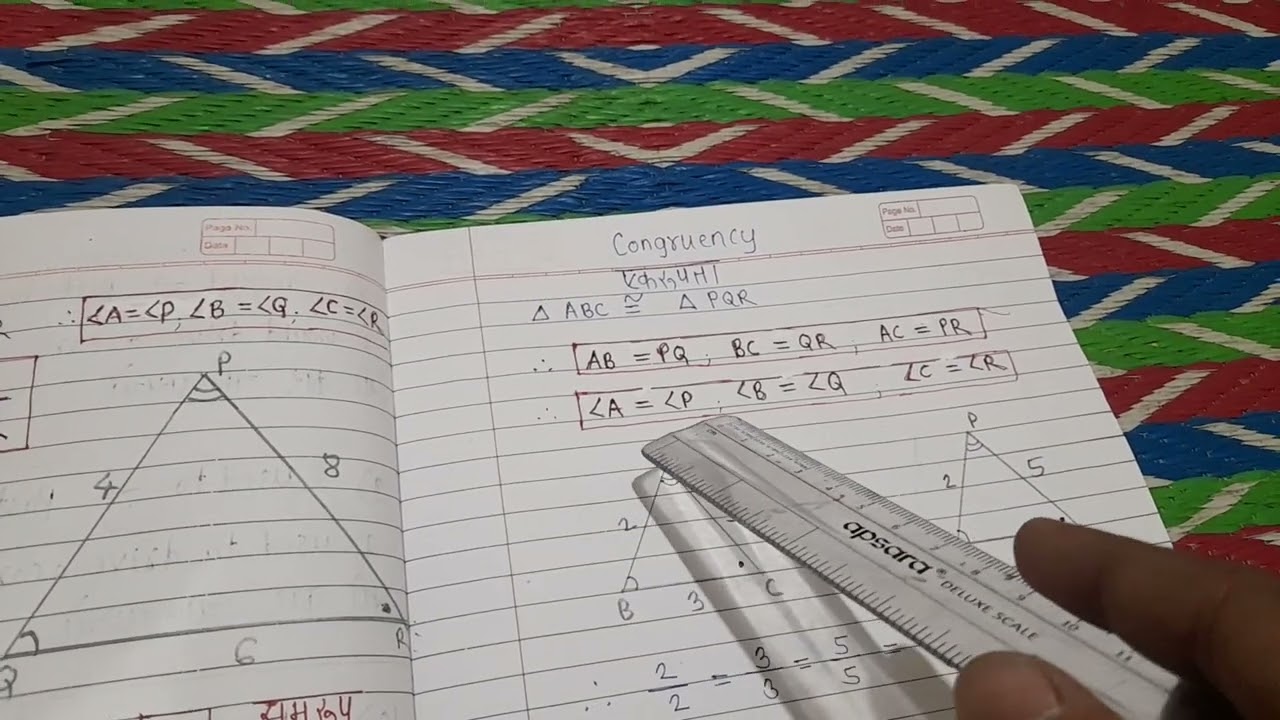 Page No.
Date
∴ ∠A=∠P, ∠B=∠Q, ∠C=∠R
P
4
8
Q
6
R
समरूप
Page No.
Date
Congruency
△ ABC ≅ △ PQR
∴ AB = PQ, BC = QR, AC = PR
∴ ∠A = ∠P, ∠B = ∠Q, ∠C = ∠R
P
2
5
2
B
3
C
∴ 2/2 = 3/3 = 5/5 =
apsara® DELUXE SCALE